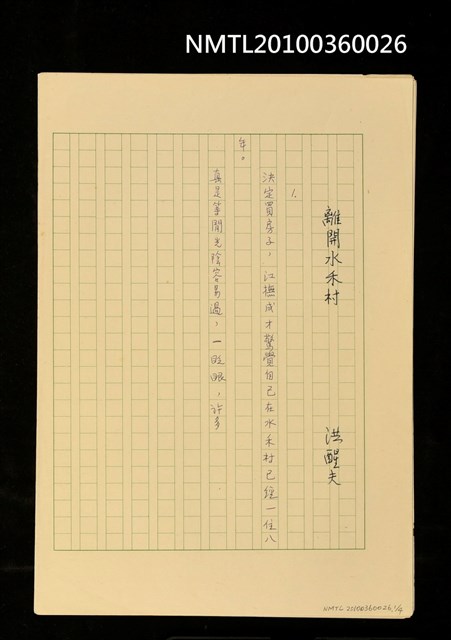 NMTL20100360026
離開水禾村
洪醒夫
1.
決定買房子,江撫成才驚覺自己在水禾村已經一住八
年。
真是等閒光陰容易過,一眨眼,許多
NMTL20100360026,1/4